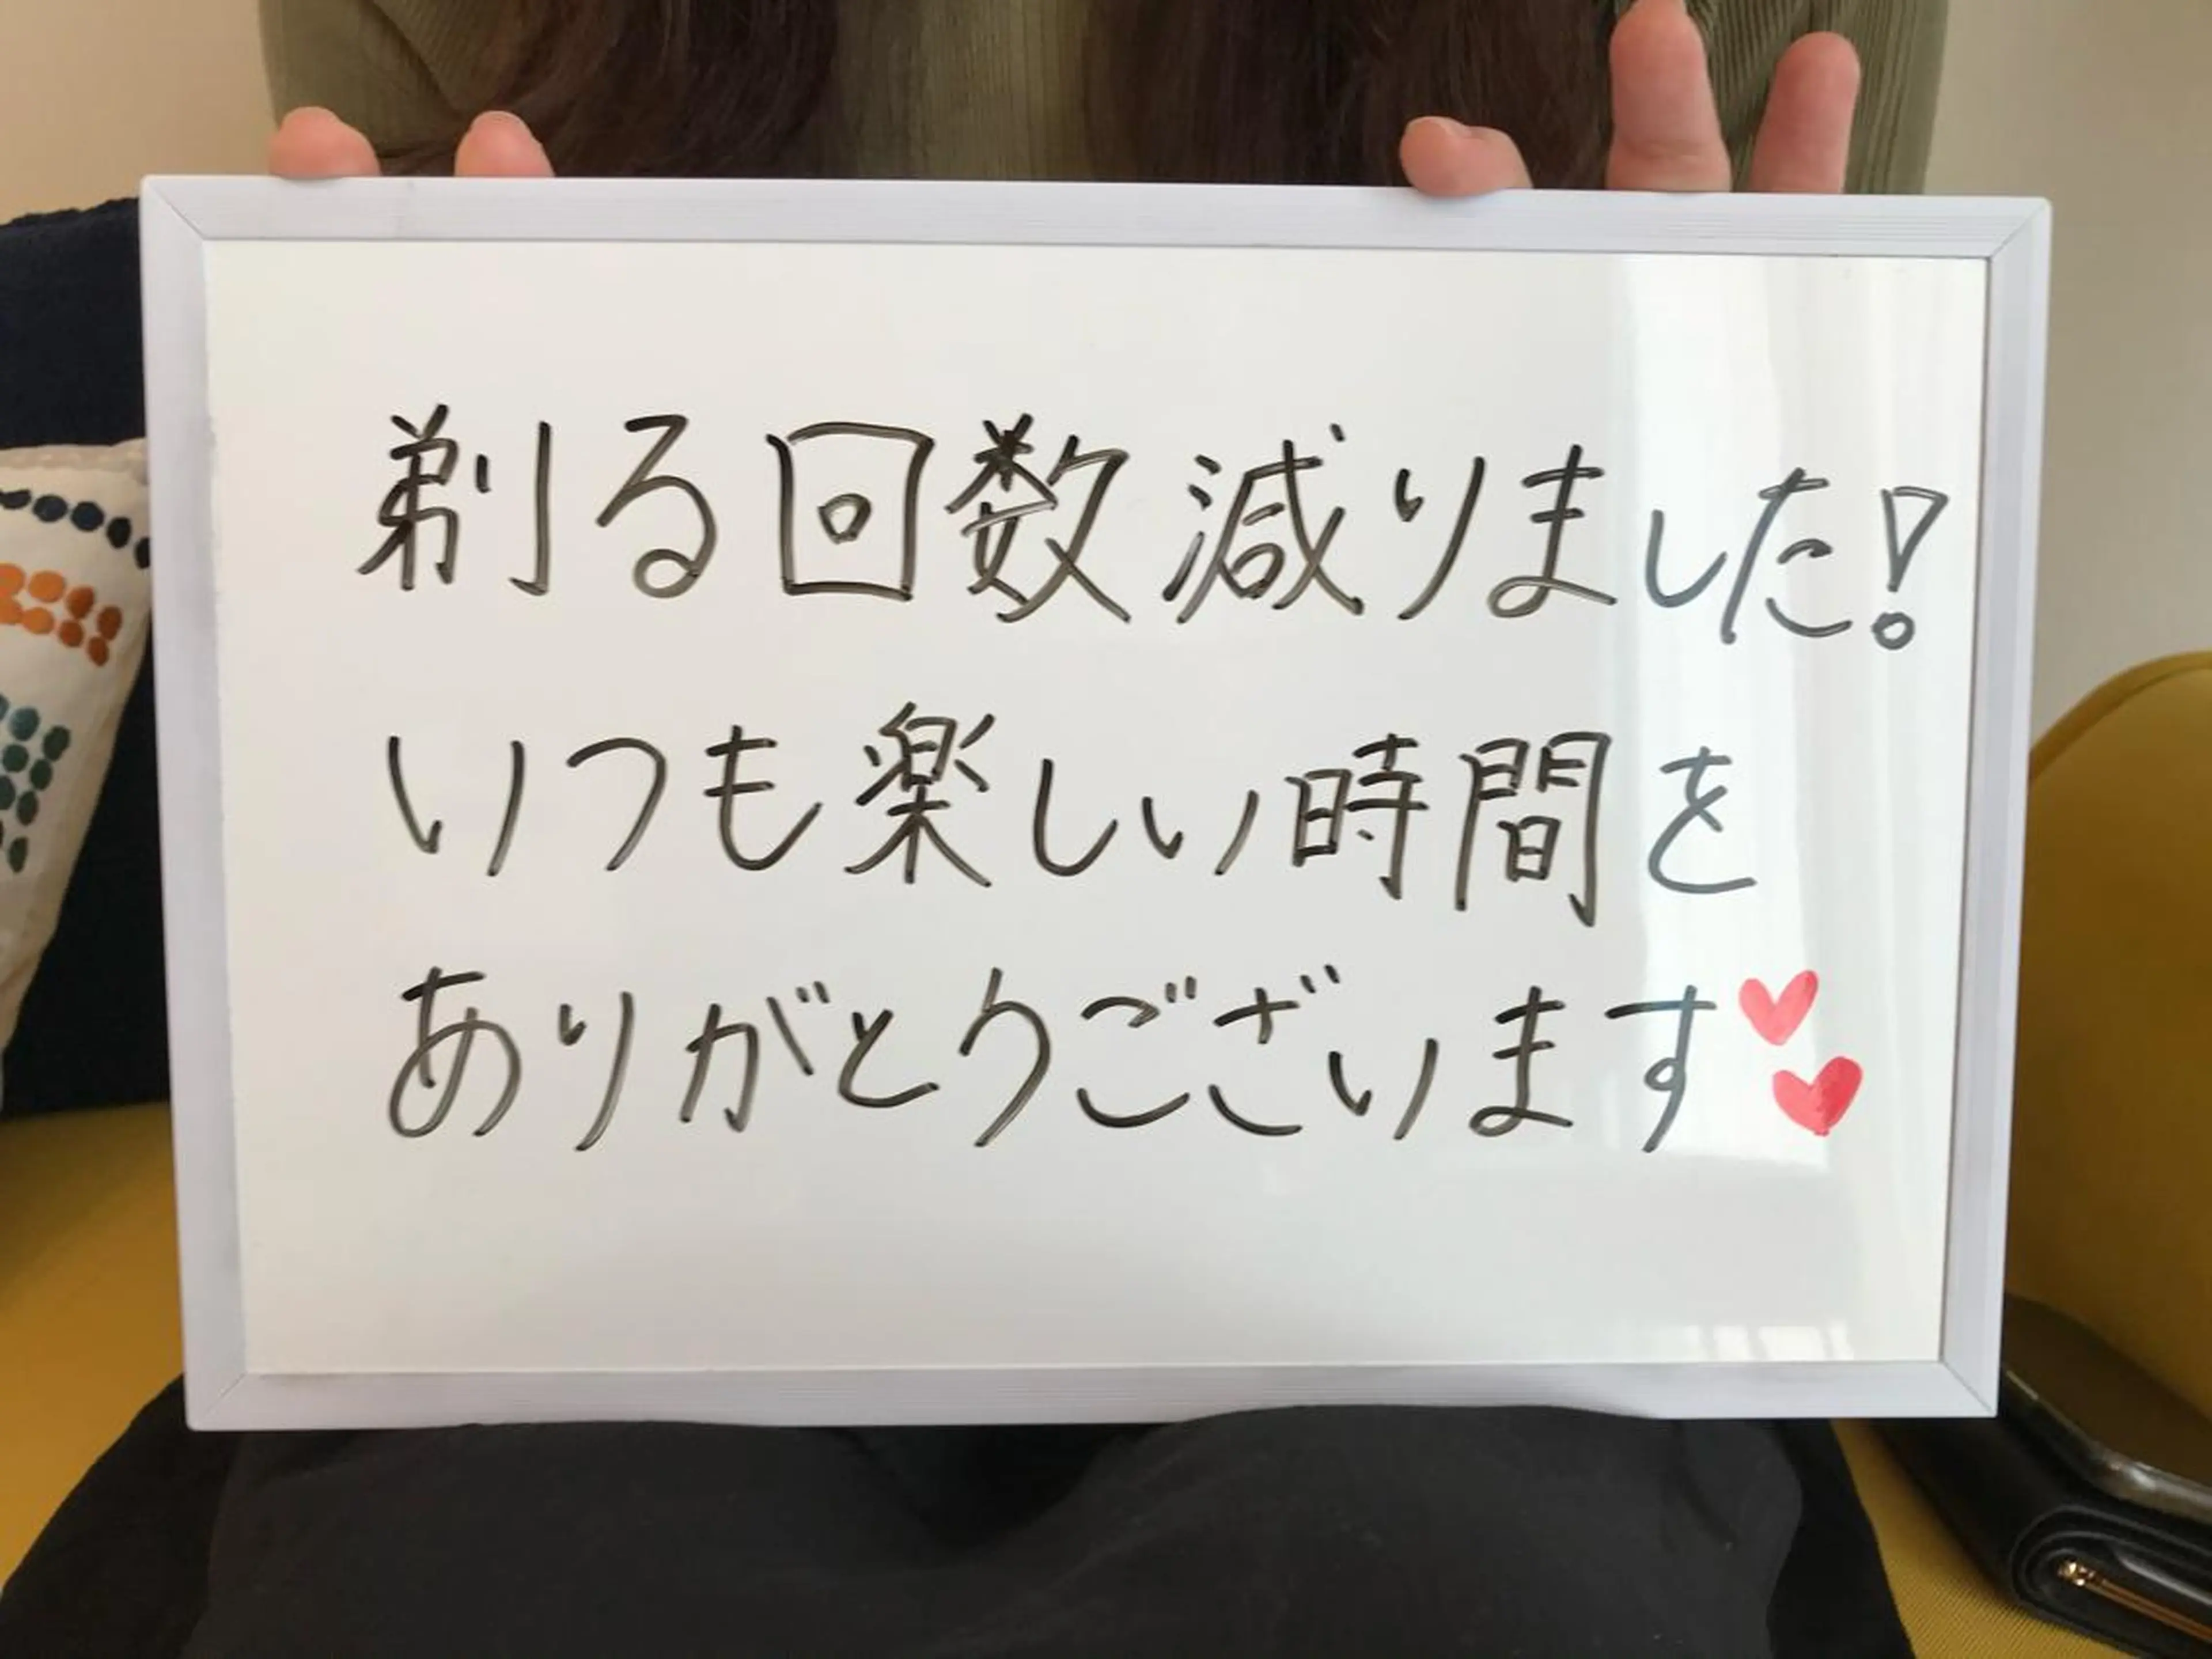 剃る回数減りました!
いつも楽しい時間を
ありがとうございます♥♥